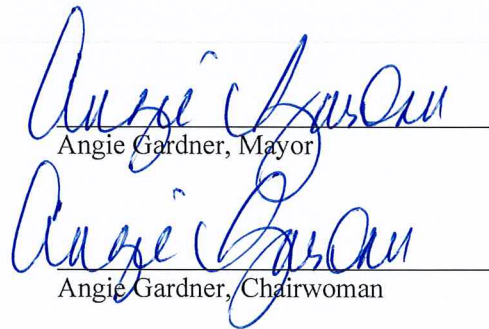 Angie Gardner
Angie Gardner, Mayor
Angie Gardner
Angie Gardner, Chairwoman